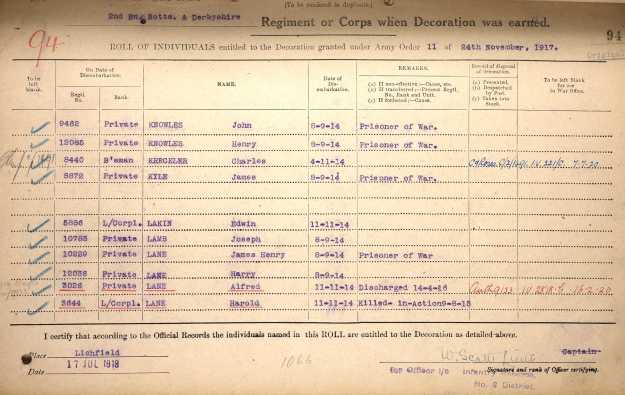 (To be rendered in duplicate.)
2nd Bn. Notts. & Derbyshire Regiment or Corps when Decoration was earned.
94 94
ROLL OF INDIVIDUALS entitled to the Decoration granted under Army Order 11 of 24th November, 1917.
To be left blank. On Date of Disembarkation. Regtl. No. Rank NAME. Date of Disembarkation. REMARKS. Record of disposal of decoration. To be left blank for use in War Office.
(a) If non-effective:—Cause, etc. (b) If transferred:—Present Regtl. No., Rank and Unit. (c) If forfeited:—Cause.
(a) Presented. (b) Despatched by Post. (c) Taken into Stock.
9462 Private KNOWLES John 8-9-14 Prisoner of War.
12085 Private KNOWLES Henry 8-9-14 Prisoner of War.
8440 B'sman Charles 4-11-14 7.7.20
Private KYLE James 8-9-14 Prisoner of War.
L/Corpl. LAKIN Edwin 11-11-14
10785 Private LAMB Joseph 8-9-14
10220 Private LANE James Henry 8-9-14 Prisoner of War
Private LANE Harry 8-9-14
Private LANE Alfred 11-11-14 Discharged 14-4-16
L/Corpl. LANE Harold 11-11-14 Killed- in-Action 9-8-15
I certify that according to the Official Records the individuals named in this ROLL are entitled to the Decoration as detailed above.
Place Lichfield
Date 17 JUL 1918
1066
Captain
for Officer i/c Infantry
No. 6 District.
Signature and rank of Officer certifying.